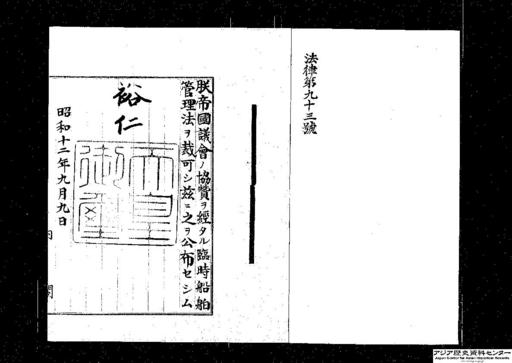 法律第九十三號
朕帝國議會ノ協賛ヲ經タル臨時船舶
管理法ヲ裁可シ茲ニ之ヲ公布セシム
裕仁
天皇御璽
昭和十二年九月九日
内 閣
アジア歴史資料センター
Japan Center for Asian Historical Records